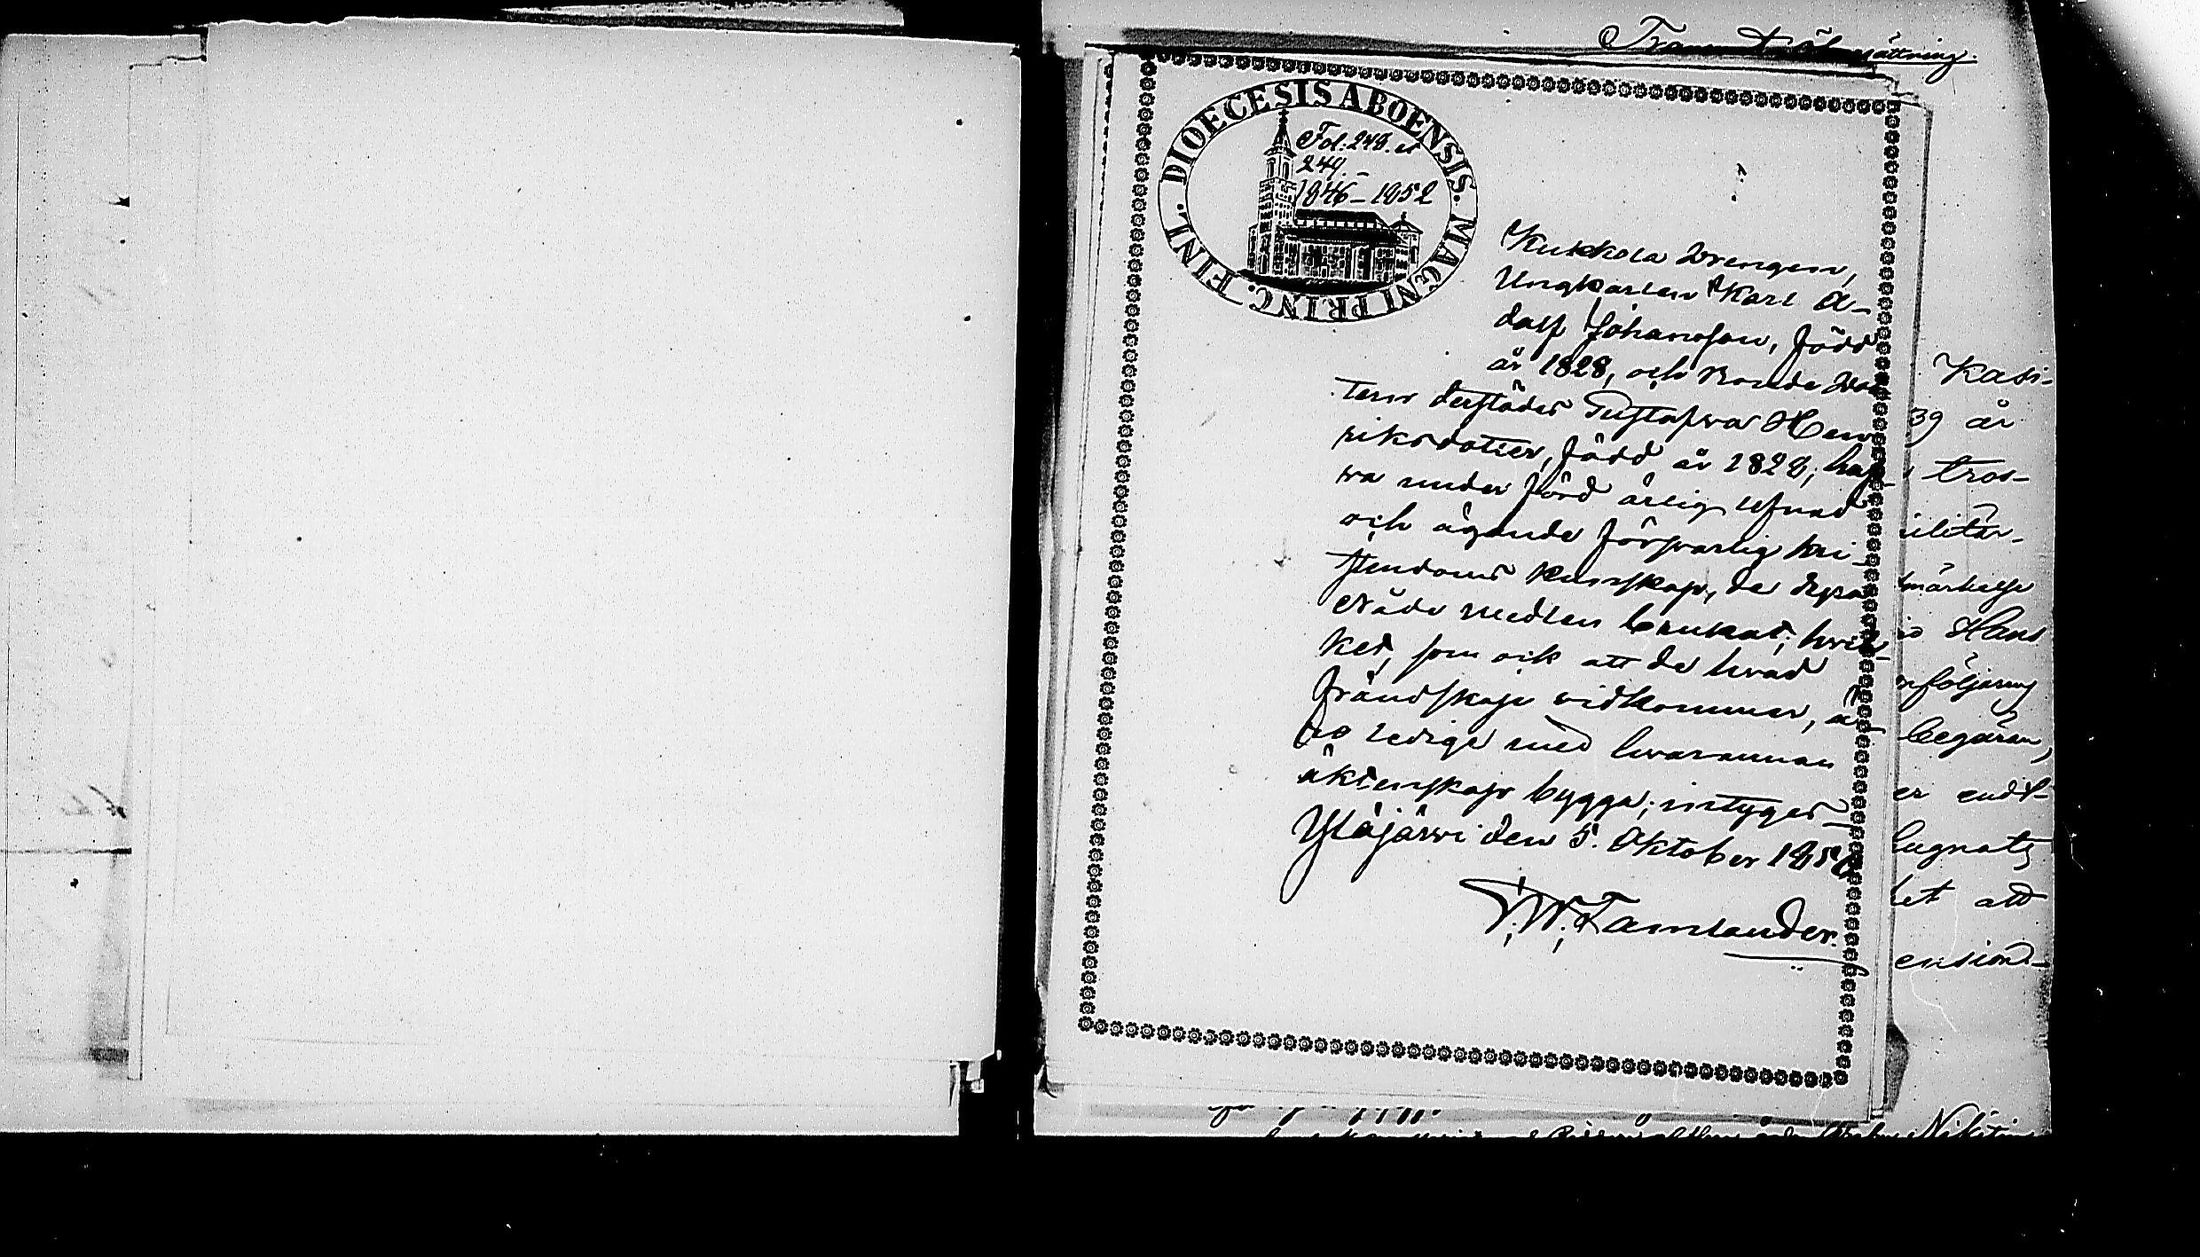 Transl. Öfversättning.
DIOECESIS ABOENSIS. MAGNI PRINC. FINL.
Fol: 248. et
249. -
1846 - 1852
Kukkola drengen,
Ungkarlen Karl A-
dolf Johansson, född
år 1828, och Bonde dot-
tern derstädes Gustafva Hen-
riksdotter, född år 1828; haf-
va under förd ärlig lefnad
och ägande försvarlig kri-
stendoms kunskap, de dyra
Nåde medlen brukat; hvil-
ket, som ock att de hvad
frändskap vidkommer, ä-
ro ledige med hvarannan
äktenskap bygga; intygas
Ylöjärvi den 5. Oktober 1850
F. W. Tamlander.
Kasi-
39 år
tros-
ilitär-
märkelse
Hans
nföljning
begäran,
er endt-
lugnats
het att
ension-
Nikitin